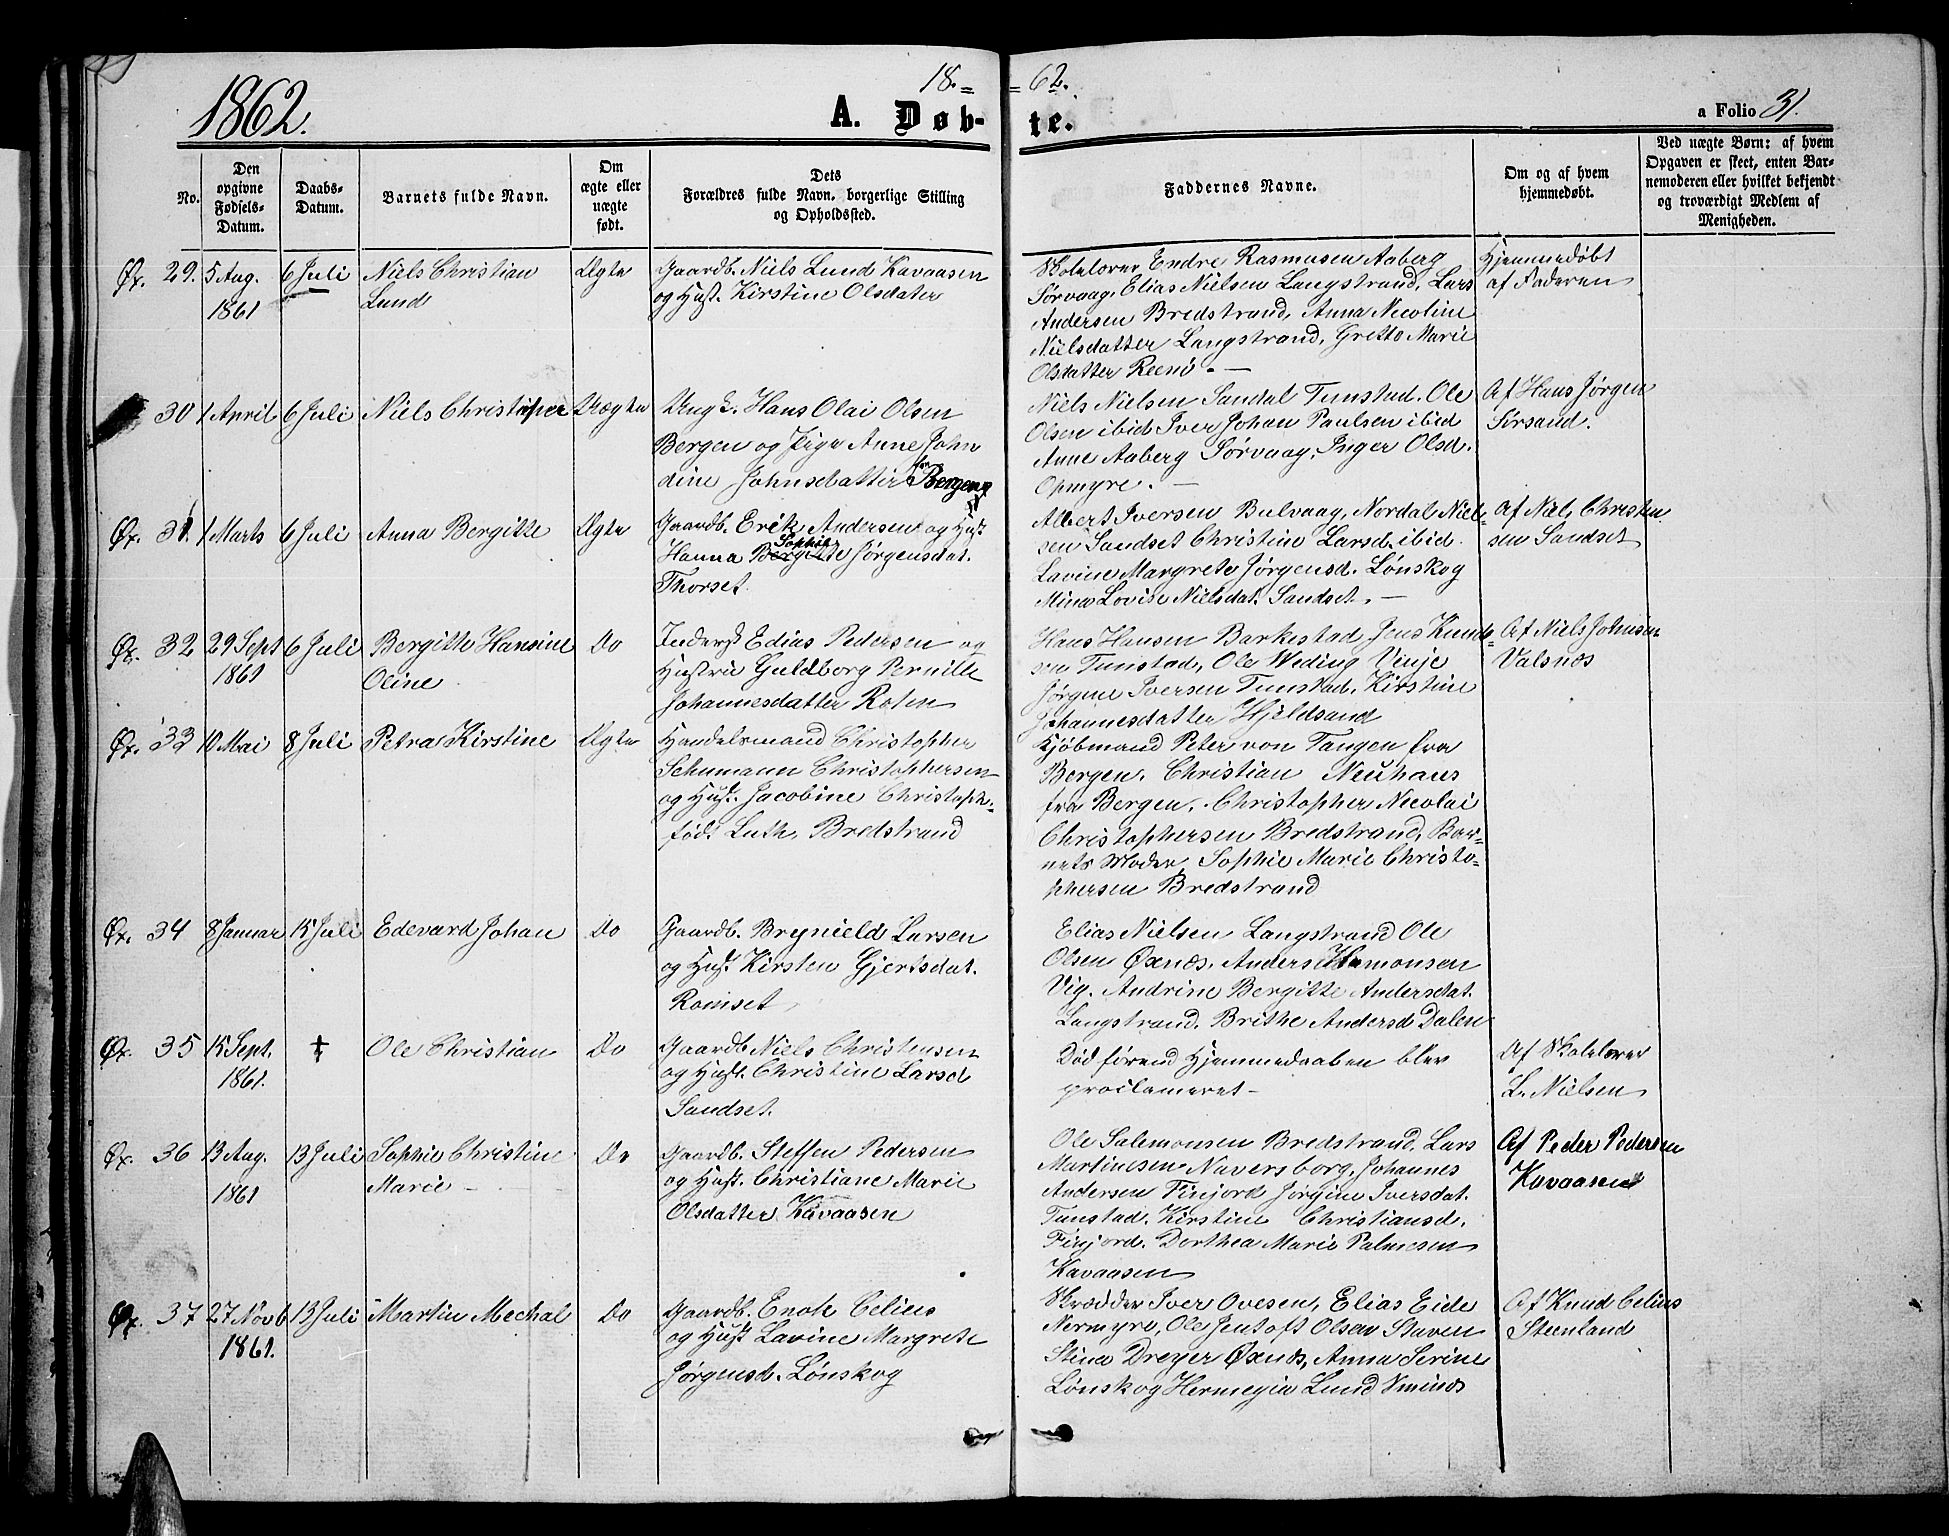 1862.
18 = = 62.
A. Døb- te.
a Folio 31.
No.
Den opgivne Fødsels-Datum.
Daabs-Datum.
Barnets fulde Navn.
Om ægte eller uægte født.
Dets Forældres fulde Navn, borgerlige Stilling og Opholdssted.
Faddernes Navne.
Om og af hvem hjemmedøbt.
Ved uægte Børn: af hvem Opgaven er skeet, enten Barnemoderen eller hvilket bekjendt og troværdigt Medlem af Menigheden.
Øx. 29. 5 Aug. 1861
6 Juli
Niels Christian
Lund
Ægte
Gaardb. Niels Lund Kavaasen
og Hust. Kirstine Olsdater
Skolelærer Endre Rasmusen Aaberg
Sørvaag, Elias Nielsen Langstrand, Lars
Andersen Bredstrand, Anna Nicoline
Nielsdatter Langstrand, Grette Marie
Olsdatter Reenø. —
Hjemmedøbt
af Faderen
30 1 April
6 Juli
Niels Christopher
Uægte
Ungk. Hans Olai Olsen
Bergen og Pige Anne John
dine Johnsdatter fra Bergen
Niels Nielsen Sandal Tunstad. Ole
Olsen ibid Iver Johan Paulsen ibid
Anne Aaberg Sørvaag, Inger Olsd.
Opmyre. —
Af Hans Jørgen
Sørsand.
Øx. 31. 1 Marts
6 Juli
Anna Bergitte
Ægte
Gaardb. Erik Andersen og Hust
Hanna Bergitte Sophie Jørgensdat.
Thorset.
Albert Iversen Bulvaag, Nordal Niel-
sen Sandset Christine Larsd. ibid.
Lavine Margrete Jørgensd. Lønskog
Mina Lovise Nielsdat. Sandset. —
Af Niels Christen
sen Sandset
Øx. 32 29 Sept 1861
6 Juli
Bergitte Hansine
Oline
Do
Inderst Edias Pedersen og
Hustru Guldborg Pernille
Johannesdatter Roten
Hans Hansen Barkestad, Jens Knud-
sen Tunstad, Ole Weding Vinje
Jørgine Iversen Tunstad, Kirstine
Johannesdatter Hjeldsand
Af Niels Johnsen
Valsnæs
Øx. 33 10 Mai
8 Juli
Petra Kirstine
Ægte
Handelsmand Christopher
Schumann Christophersen
og Hust. Jacobine Christoph.
født Luth, Bredstrand
Kjøbmand Peter von Tangen fra
Bergen, Christian Neuhaus
fra Bergen, Christopher Nicolai
Christophersen Bredstrand, Bar-
nets Moder, Sophie Marie Christo-
phersen Bredstrand
Øx. 34 8 Januar
15 Juli
Edevard Johan
Do
Gaardb. Brynield Larsen
og Hust. Kirsten Gjertsdat.
Romset
Elias Nielsen Langstrand Ole
Olsen Øxnæs, Anders Hemonsen
Vig. Andrine Bergitte Andersdat.
Langstrand. Brithe Andersd Dalen
Øx. 35 15 Sept. 1861.
†
Ole Christian
Do
Gaardb. Niels Christensen
og Hust. Christine Larsd
Sandset.
Død førend Hjemmedaaben blev
proclameret —
Af Skolelærer
L. Nielsen
Øx. 36 13 Aug. 1861
13 Juli
Sophie Christine
Marie —
Do
Gaardb. Steffen Pedersen
og Hust. Christiane Marie
Olsdatter Kavaasen
Ole Salemonsen Bredstrand, Lars
Martinesen Naversborg, Johannes
Andersen Finjord Jørgine Iversdat.
Tunstad. Kirstine Christiansd.
Finjord. Dorthea Marie Palmesen
Kavaasen
Af Peder Pedersen
Kavaasen
Øx. 37 27 Novb 1861.
13 Juli
Martin Mechal
Do
Gaardb. Enok Celius
og Hust Lavine Margrete
Jørgensd. Lønskog
Skrædder Iver Ovesen, Elias Eide
Nermyre, Ole Jentoft Olsen Staven
Stina Dreyer Øxnæs, Anna Serine
Lønskog Hermegin Lund Sminæs
Af Knud Celius
Steenland